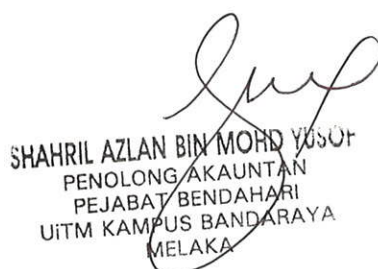 SHAHRIL AZLAN BIN MOHD YUSOF
PENOLONG AKAUNTAN
PEJABAT BENDAHARI
UiTM KAMPUS BANDARAYA
MELAKA